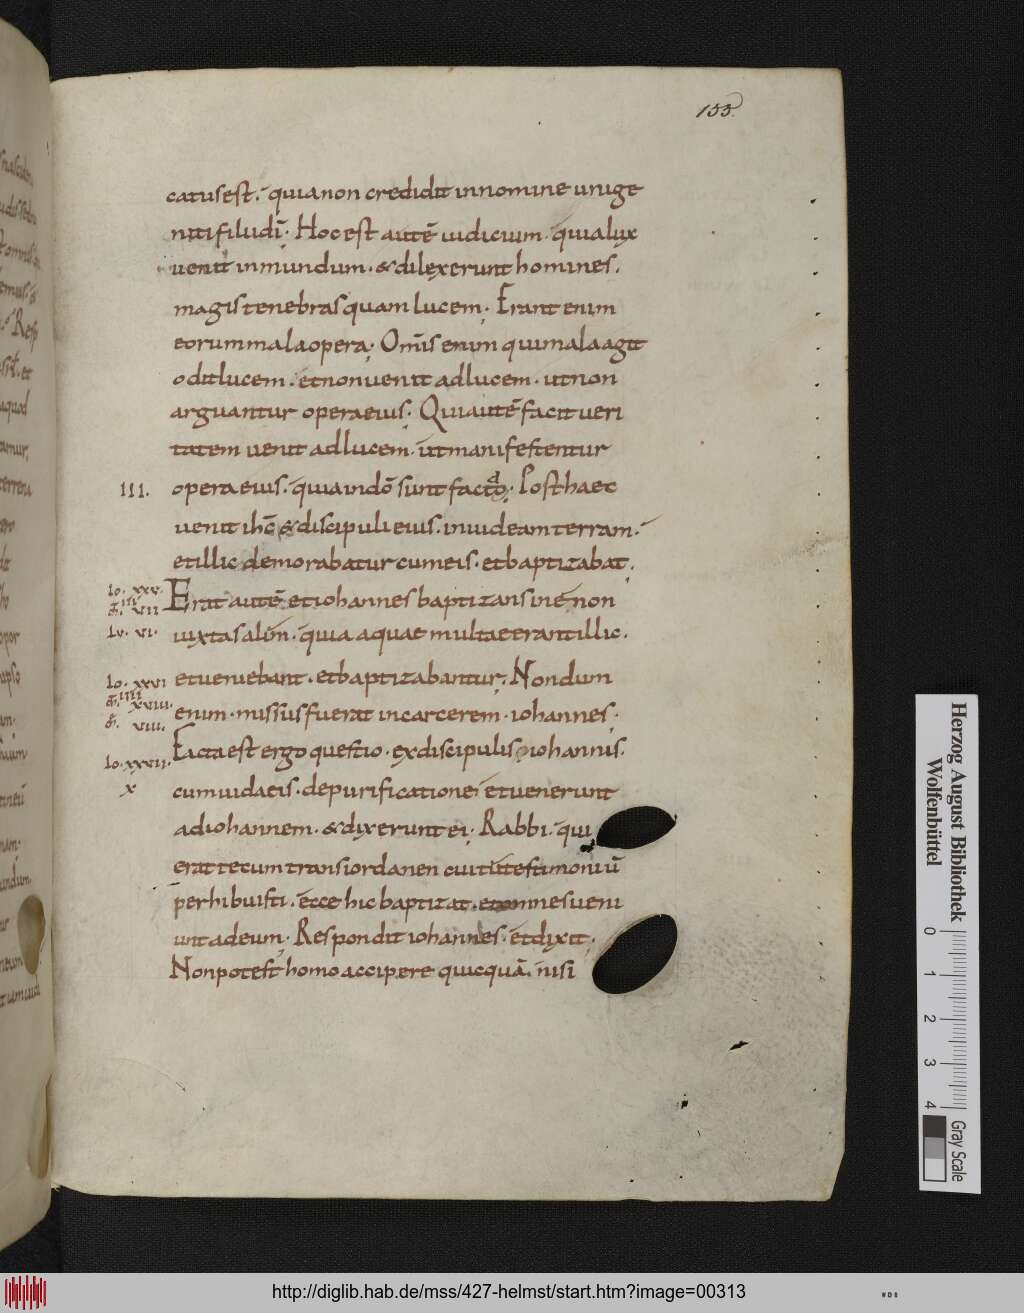 155.
catus est. quia non credidit in nomine unige
niti filii dī. Hoc est autē iudicium. quia lux
uenit in mundum. & dilexerunt homines.
magis tenebras quam lucem. Erant enim
eorum mala opera. Om̄is enim qui mala agit
odit lucem. et non uenit ad lucem. ut non
arguantur opera eius. Qui autē facit ueri
tatem uenit ad lucem. ut manifestentur
III. opera eius. quia in dō sunt facta. Post haec
uenit ihc̄ & discipuli eius. in iudeam terram.
et illic demorabatur cum eis. et baptizabat.
Io. xxv.
Erat autē et iohannes baptizans in enon
Lu. vi.
iuxta salim. quia aquae multae erant illic.
Io. xxvi
et ueniebant. et baptizabantur. Nondum
xviiii.
enim. missus fuerat in carcerem. iohannes.
viii.
Facta est ergo questio. ex discipulis iohannis.
Io. xxvii.
x
cum iudaeis. de purificatione. et uenerunt
ad iohannem. & dixerunt ei. Rabbi. qui
erat tecum trans iordanen cui tu testimoniū
perhibuisti. ecce hic baptizat. et omnes ueni
unt ad eum. Respondit iohannes. et dixit.
Non potest homo accipere quicquā. nisi
Herzog August Bibliothek
Wolfenbüttel
0 1 2 3 4
Gray Scale
http://diglib.hab.de/mss/427-helmst/start.htm?image=00313